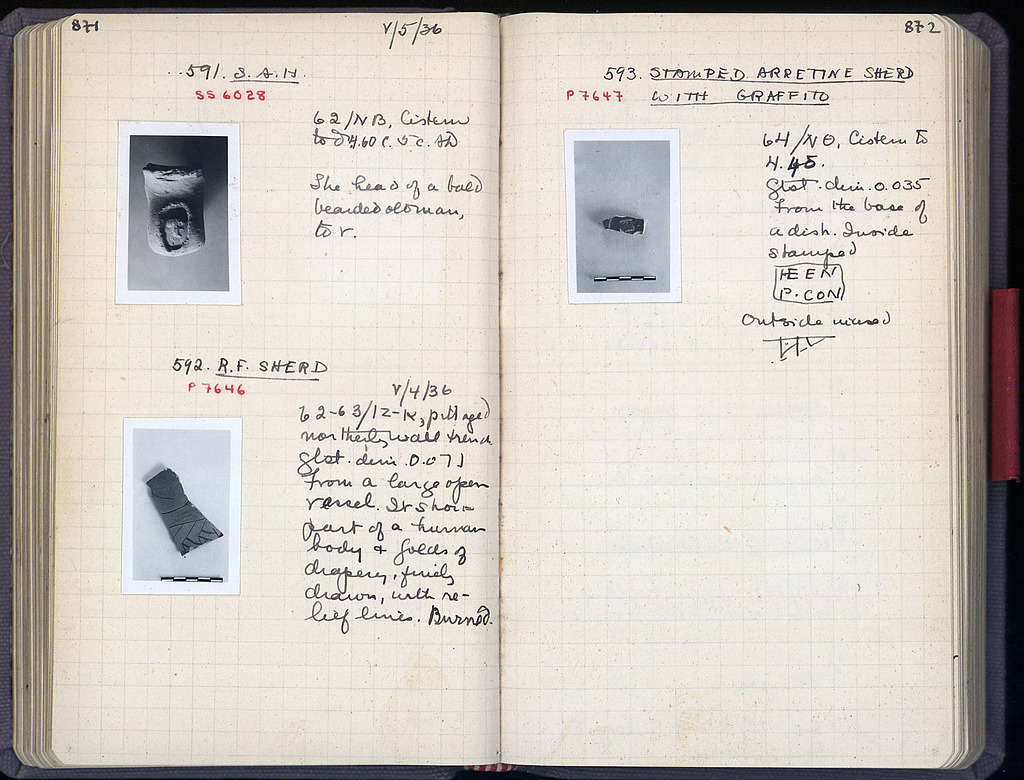 871
V/5/36
591. S.A.H.
SS 6028
62/NB, Cistern
to 4.60 c. 5 c. AD
The head of a bald
bearded old man,
to r.
592. R.F. SHERD
P 7646
V/4/36
62-63/IZ-K, pillaged
northerly wall trench
gtst. dim. 0.071
From a large open
vessel. It shows
part of a human
body & folds of
drapery, finely
drawn, with re-
lief lines. Burned.
872
593. STAMPED ARRETINE SHERD
P 7647 WITH GRAFFITO
64/NΘ, Cistern to
4.45.
gtst. dim. 0.035
From the base of
a dish. Inside
stamped
HEEN
P.CON
Outside incised